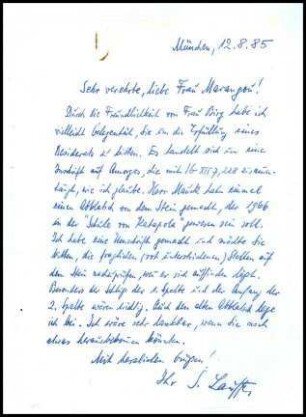 München, 12.8.85
Sehr verehrte, liebe Frau Marangou!
Durch die Freundlichkeit von Frau Börg habe ich
vielleicht Gelegenheit, Sie um die Erfüllung eines
Desiderats zu bitten. Es handelt sich um eine
Inschrift auf Amorgos, die mit IG XII 7,
wie ich glaube. Herr Hauck hat einmal
einen Abklatsch von dem Stein gemacht, der 1966
in der "Schule von Katapola" gewesen sein soll.
Ich habe eine Umschrift gemacht und möchte Sie
bitten, die fraglichen (rot unterstrichenen) Stellen auf
dem Stein nachzuprüfen, wenn er sich auffinden läßt.
Besonders der Schluß der 1. Spalte und der Anfang der
2. Spalte wären wichtig. Auch den alten Abklatsch lege
ich bei. Ich wäre sehr dankbar, wenn Sie noch
etwas herausbekommen könnten.
Mit herzlichen Grüßen!
Ihr S. Lauffer